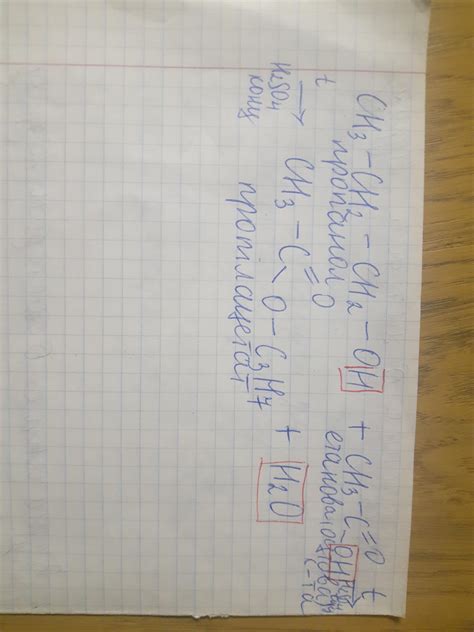 CH3 – CH2 – CH2 – OH + CH3 – C = O
OH
t
пропанол
етановая
к-та
t
→
H2SO4
конц
CH3 – C = O
O – C3H7 + H2O
пропилацетат